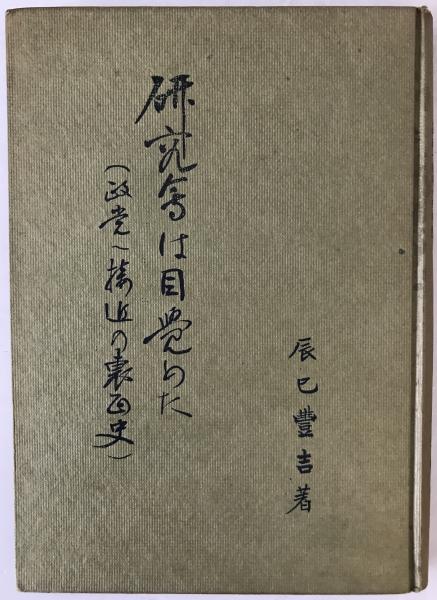 辰巳豐吉著
研究會は目覺めた
(政党へ接近の裏面史)